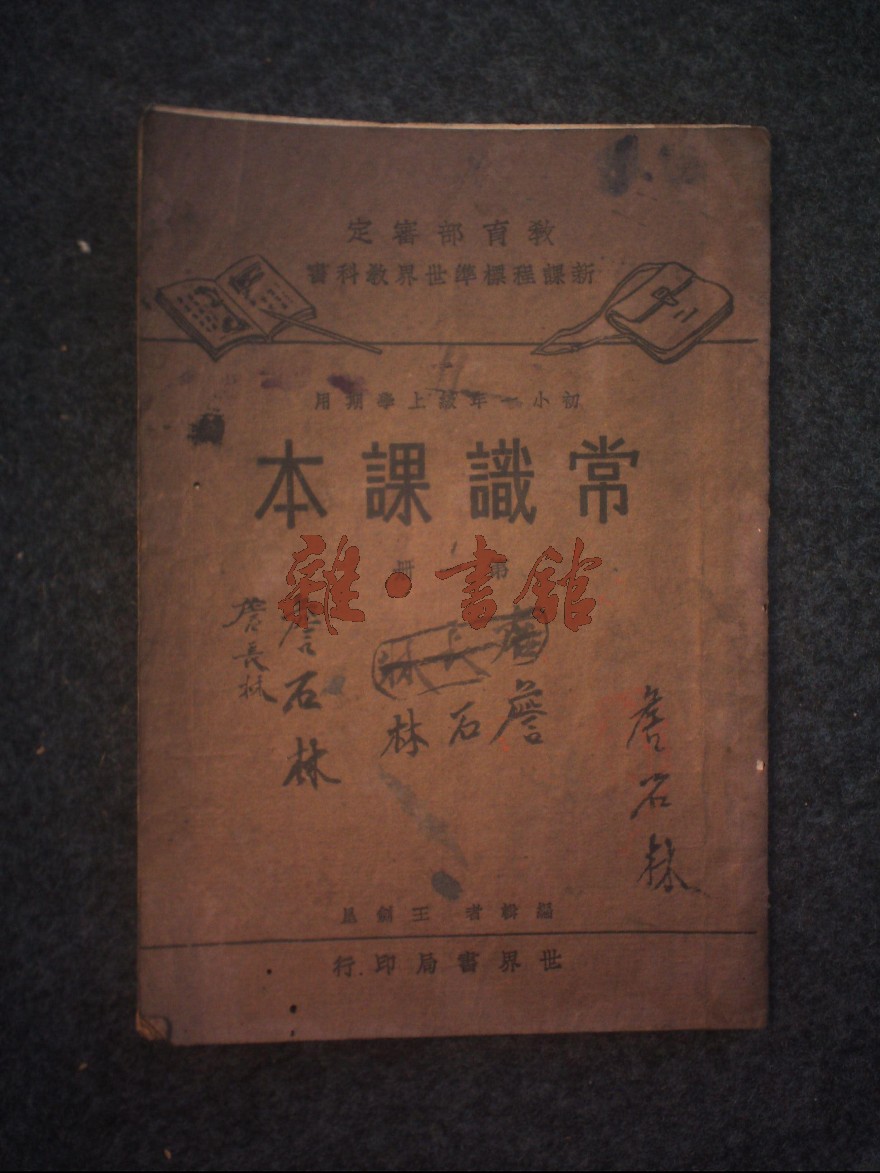 教育部審定
新課程標準世界教科書
初小一年級上學期用
常識課本
第一冊
雜·書館
詹長林
詹石林
詹長林
詹石林
詹石林
編輯者 王劍星
世界書局印行